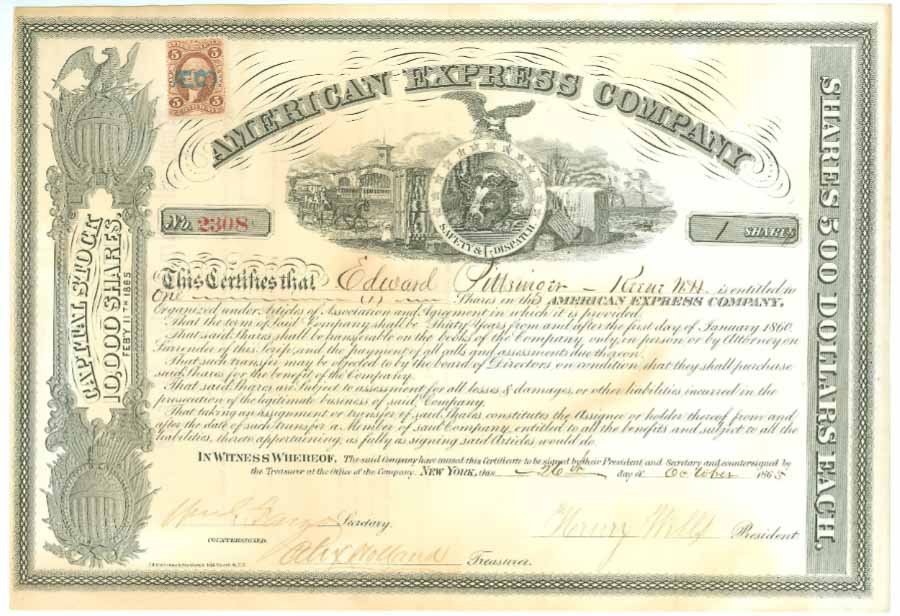 5 5
AMERICAN EXPRESS COMPANY
No. 2308
SAFETY & DISPATCH
1 SHARES
CAPITAL STOCK
10,000 SHARES.
FEBY 11TH 1865
SHARES 500 DOLLARS EACH.
This Certifies that Edward Pittsinger - Keene N.H. is entitled to
One (1) Shares in the AMERICAN EXPRESS COMPANY.
Organized under Articles of Association and Agreement in which it is provided
That the term of said Company shall be Thirty Years from and after the first day of January 1860.
That said Shares shall be transferable on the books of the Company only, in person or by Attorney on
Surrender of this Scrip, and the payment of all calls and assessments due thereon.
That such transfer may be objected to by the board of Directors on condition that they shall purchase
said Shares for the benefit of the Company.
That said Shares are Subject to assessment for all losses & damages, or other liabilities incurred in the
prosecution of the legitimate business of said Company.
That taking an assignment or transfer of said Shares constitutes the Assignee or holder thereof from and
after the date of such transfer a Member of said Company, entitled to all the benefits and subject to all the
liabilities, thereto appertaining, as fully as signing said Articles would do.
IN WITNESS WHEREOF, The said Company have caused this Certificate to be signed by their President and Secretary and countersigned by
the Treasurer at the Office of the Company. NEW YORK, this 26th day of October 1865
Wm G Fargo Secretary. Henry Wells President.
COUNTERSIGNED.
Alex Holland Treasurer.